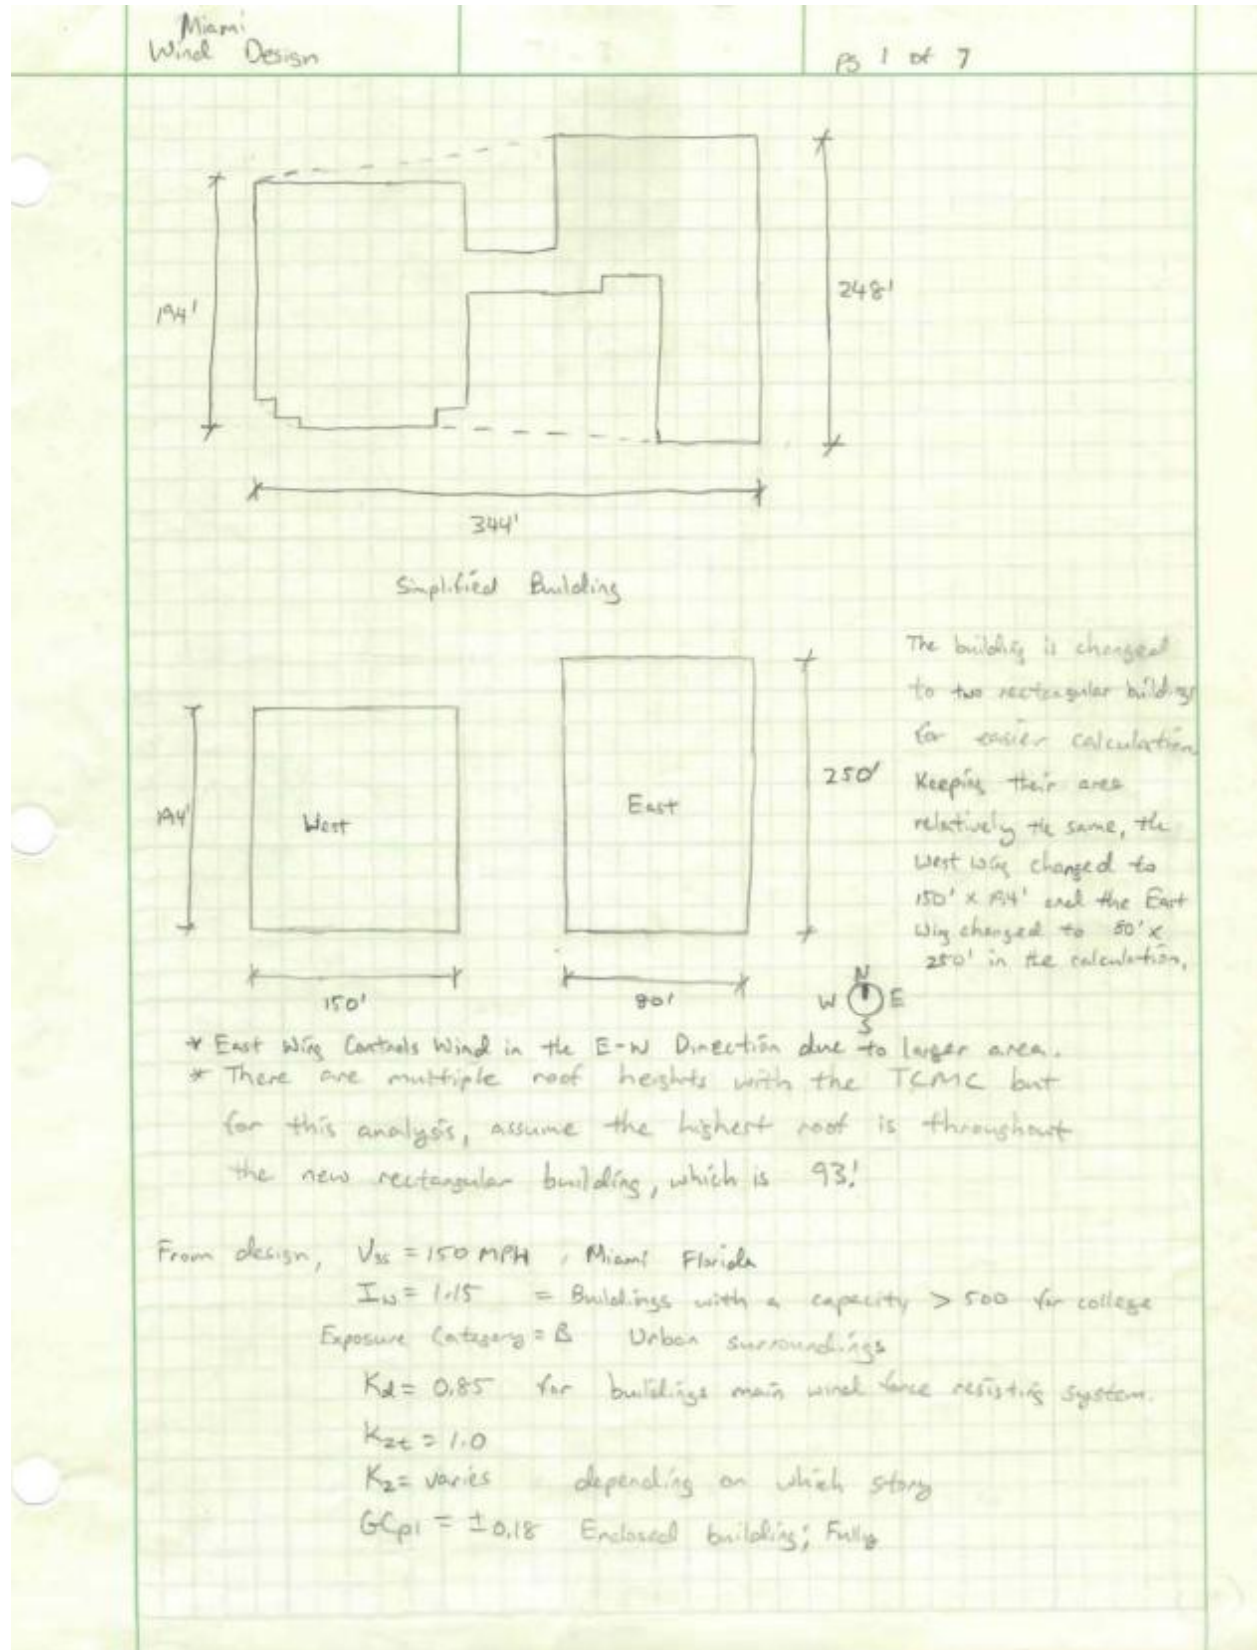 Miami
Wind Design
pg 1 of 7
194'
248'
344'
Simplified Building
The building is changed
to two rectangular buildings
for easier calculation
Keeping their area
relatively the same, the
West wing changed to
150' x 194' and the East
Wing changed to 80' x
250' in the calculation.
194'
West
East
250'
150'
80'
N
W E
S
* East Wing Controls Wind in the E-W Direction due to larger area.
* There are multiple roof heights with the TCMC but
for this analysis, assume the highest roof is throughout
the new rectangular building, which is 93'.
From design, V3s = 150 MPH, Miami Florida
Iw = 1.15 = Buildings with a capacity > 500 for college
Exposure Category = B Urban surroundings
Kd = 0.85 for buildings main wind force resisting system.
Kzt = 1.0
Kz = varies depending on which story
GCpi = ±0.18 Enclosed building; Fully